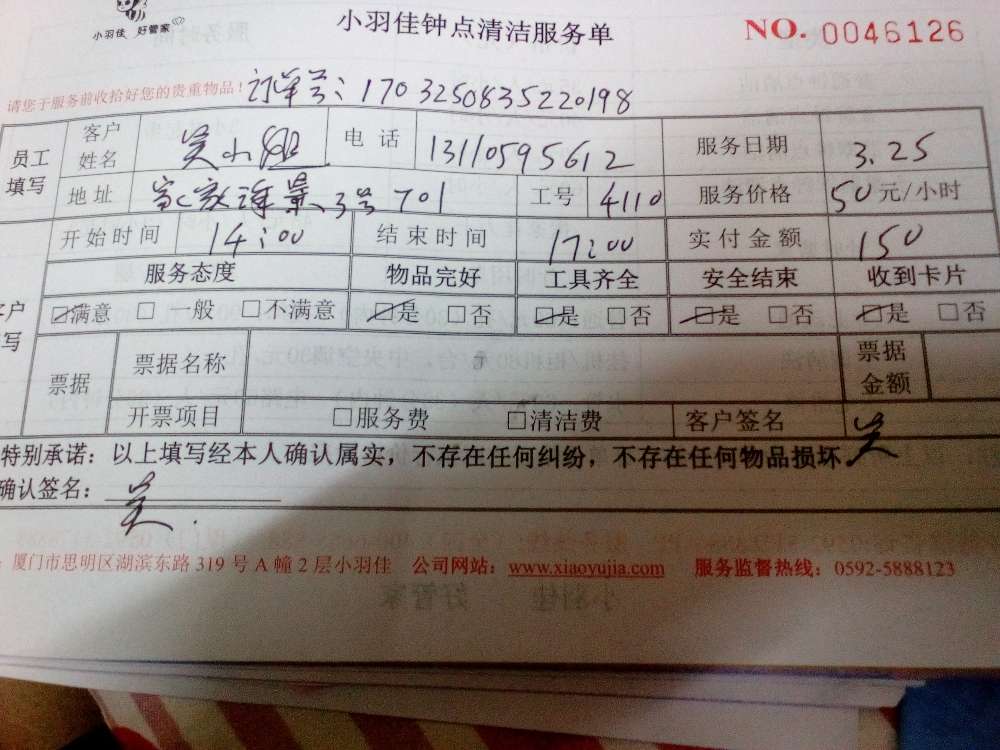 小羽佳 好管家
小羽佳钟点清洁服务单
NO. 0046126
请您于服务前收拾好您的贵重物品！
订单号：1703250835220198
员工填写 客户姓名 吴小姐 电话 13110595612 服务日期 3.25
地址 3号701 工号 4110 服务价格 50元/小时
开始时间 14:00 结束时间 17:00 实付金额 150
服务态度 物品完好 工具齐全 安全结束 收到卡片
户写 ☑满意 □一般 □不满意 ☑是 □否 ☑是 □否 ☑是 □否 ☑是 □否
票据 票据名称 票据金额
开票项目 □服务费 □清洁费 客户签名 吴
特别承诺：以上填写经本人确认属实，不存在任何纠纷，不存在任何物品损坏
确认签名：吴
厦门市思明区湖滨东路 319 号 A 幢 2 层小羽佳 公司网站：www.xiaoyujia.com 服务监督热线：0592-5888123